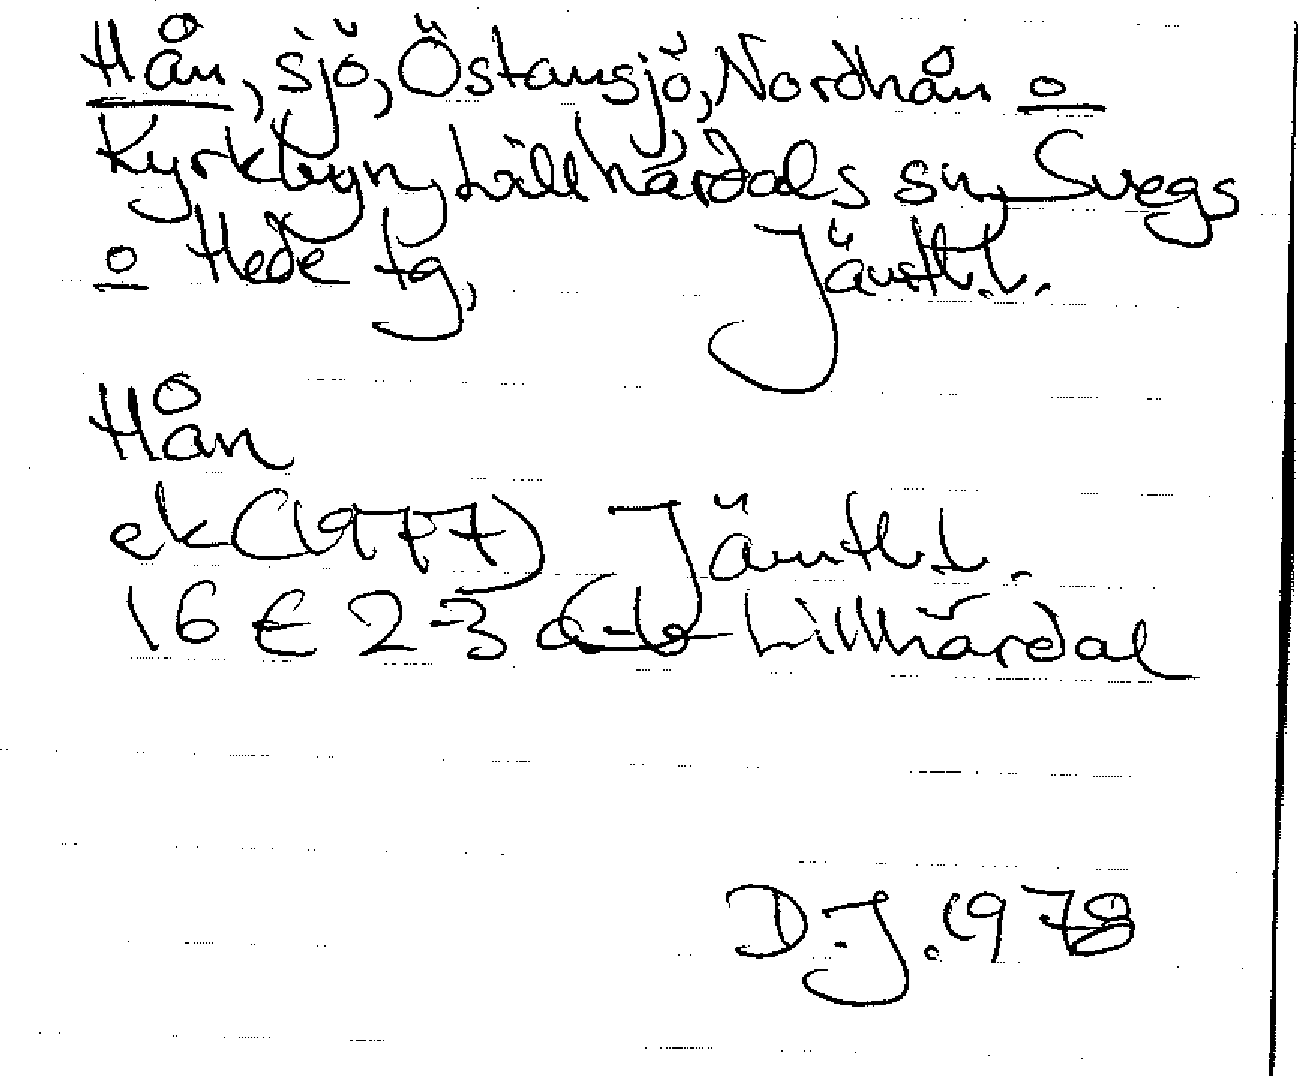 Hån, sjö, Östansjö, Nordhån o
Kyrkbyn, Lillhärdals sn, Svegs
o Hede tg, Jämtl.l.
Hån
ek (1977) Jämtl.l.
16 E 2-3 a-b Lillhärdal
D.J. 1978